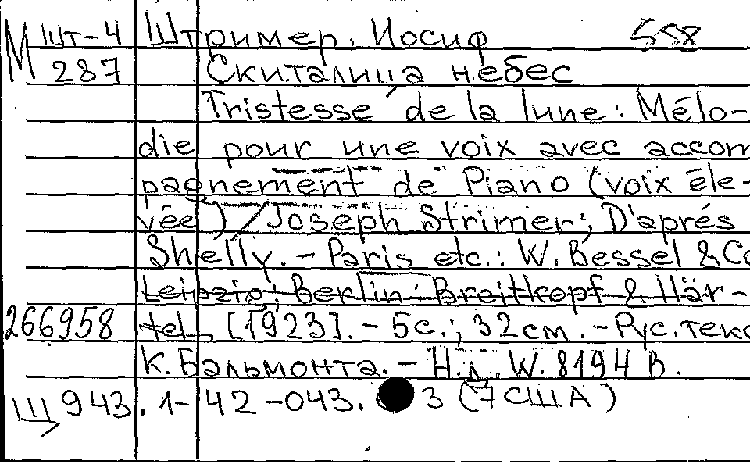 М Шт-4 Штример, Иосиф 558
287 Скиталица небес
Tristesse de la lune: Mélo-
die pour une voix avec accom
pagnement de Piano (voix éle-
vée) / Joseph Strimer; D'aprés
Shelly. – Paris etc.: W. Bessel & Co
Leipzig; Berlin: Breitkopf & Här-
266958 tel, [1923]. – 5с.; 32см. – Рус. текс
К. Бальмонта. – Н.д. W. 8194 B.
Щ 943. 1-42-043. 3 (7 США)